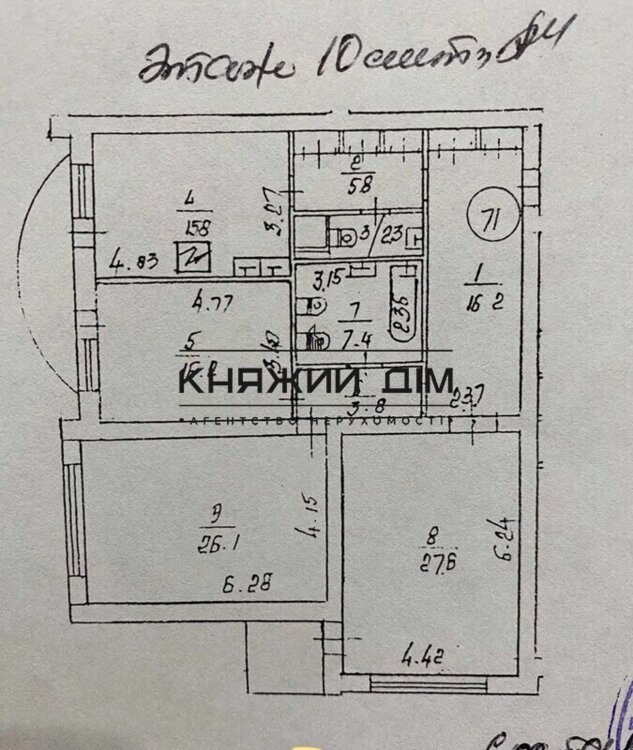 этаж 10
2
5.8
4
15.8
3.27
4.83
3
2.3
71
1
16.2
3.15
7
7.4
2.35
4.77
5
КНЯЖИЙ ДІМ
3.8
2.37
АГЕНТСТВО НЕРУХОМОСТІ
9
26.1
4.15
6.28
8
27.6
6.24
4.42